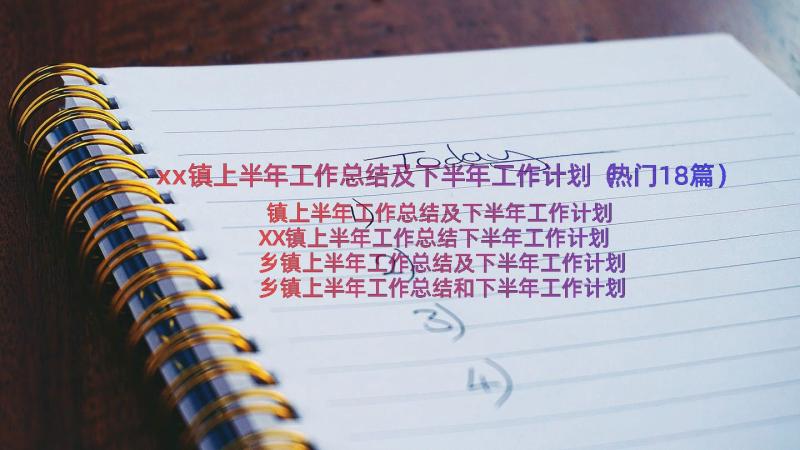 Today
xx镇上半年工作总结及下半年工作计划（热门18篇）
1)
镇上半年工作总结及下半年工作计划
XX镇上半年工作总结下半年工作计划
2)
乡镇上半年工作总结及下半年工作计划
乡镇上半年工作总结和下半年工作计划
3)
4)